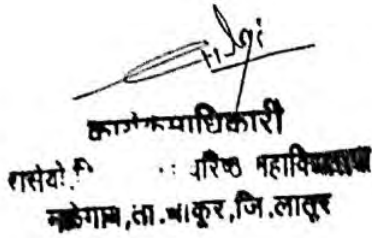 कार्यक्रमाधिकारी
रासेयो. वरिष्ठ महाविद्यालय
ता.चाकूर,जि.लातूर